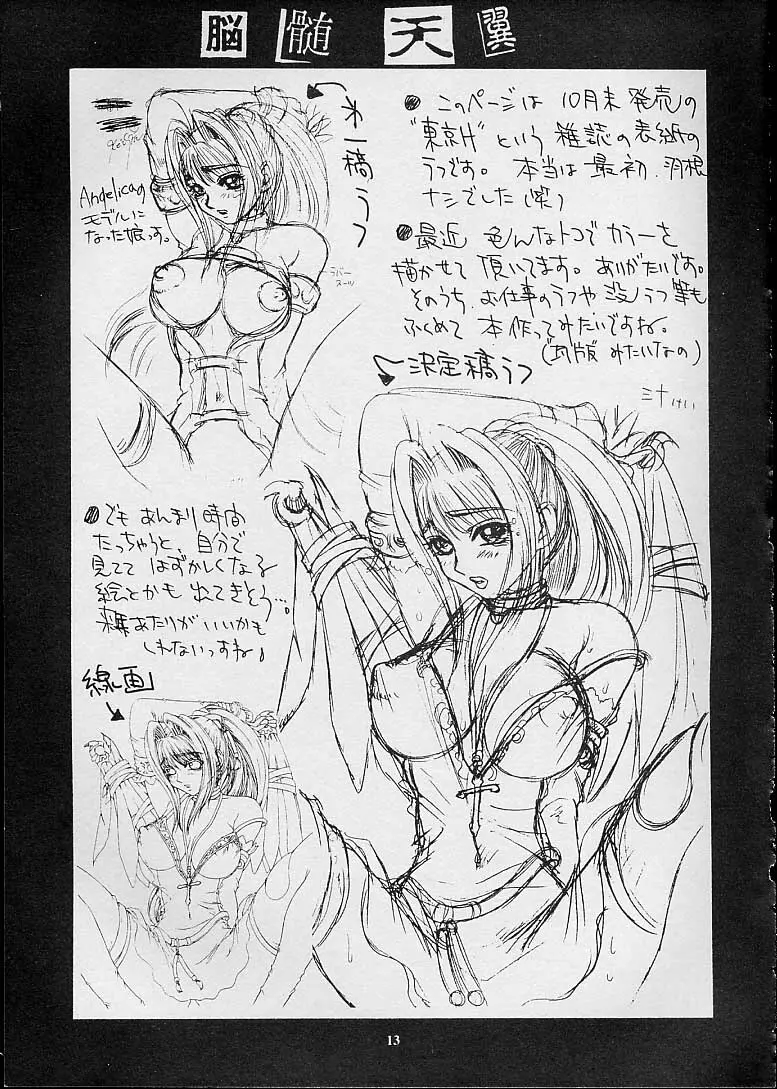 脳髄天翼
第一稿ラフ
Angelicaの
モデルに
なった娘っす。
ラバー
スーツ
● このページは 10月末 発売の
"東京H" という 雑誌の表紙の
ラフです。 本当は 最初 羽根
ナシでした(笑)
● 最近 色んなトコで カラーを
描かせて 頂いてます。ありがたいです。
そのうち お仕事のラフや 没ラフ等も
ふくめて 本作ってみたいですね。
決定稿ラフ
● でも あんまり 時間
たっちゃうと、自分で
見てて はずかしくなる
絵とかも 出てきそう…。
あたりがいいかも
しれないっすね♪
線画
13